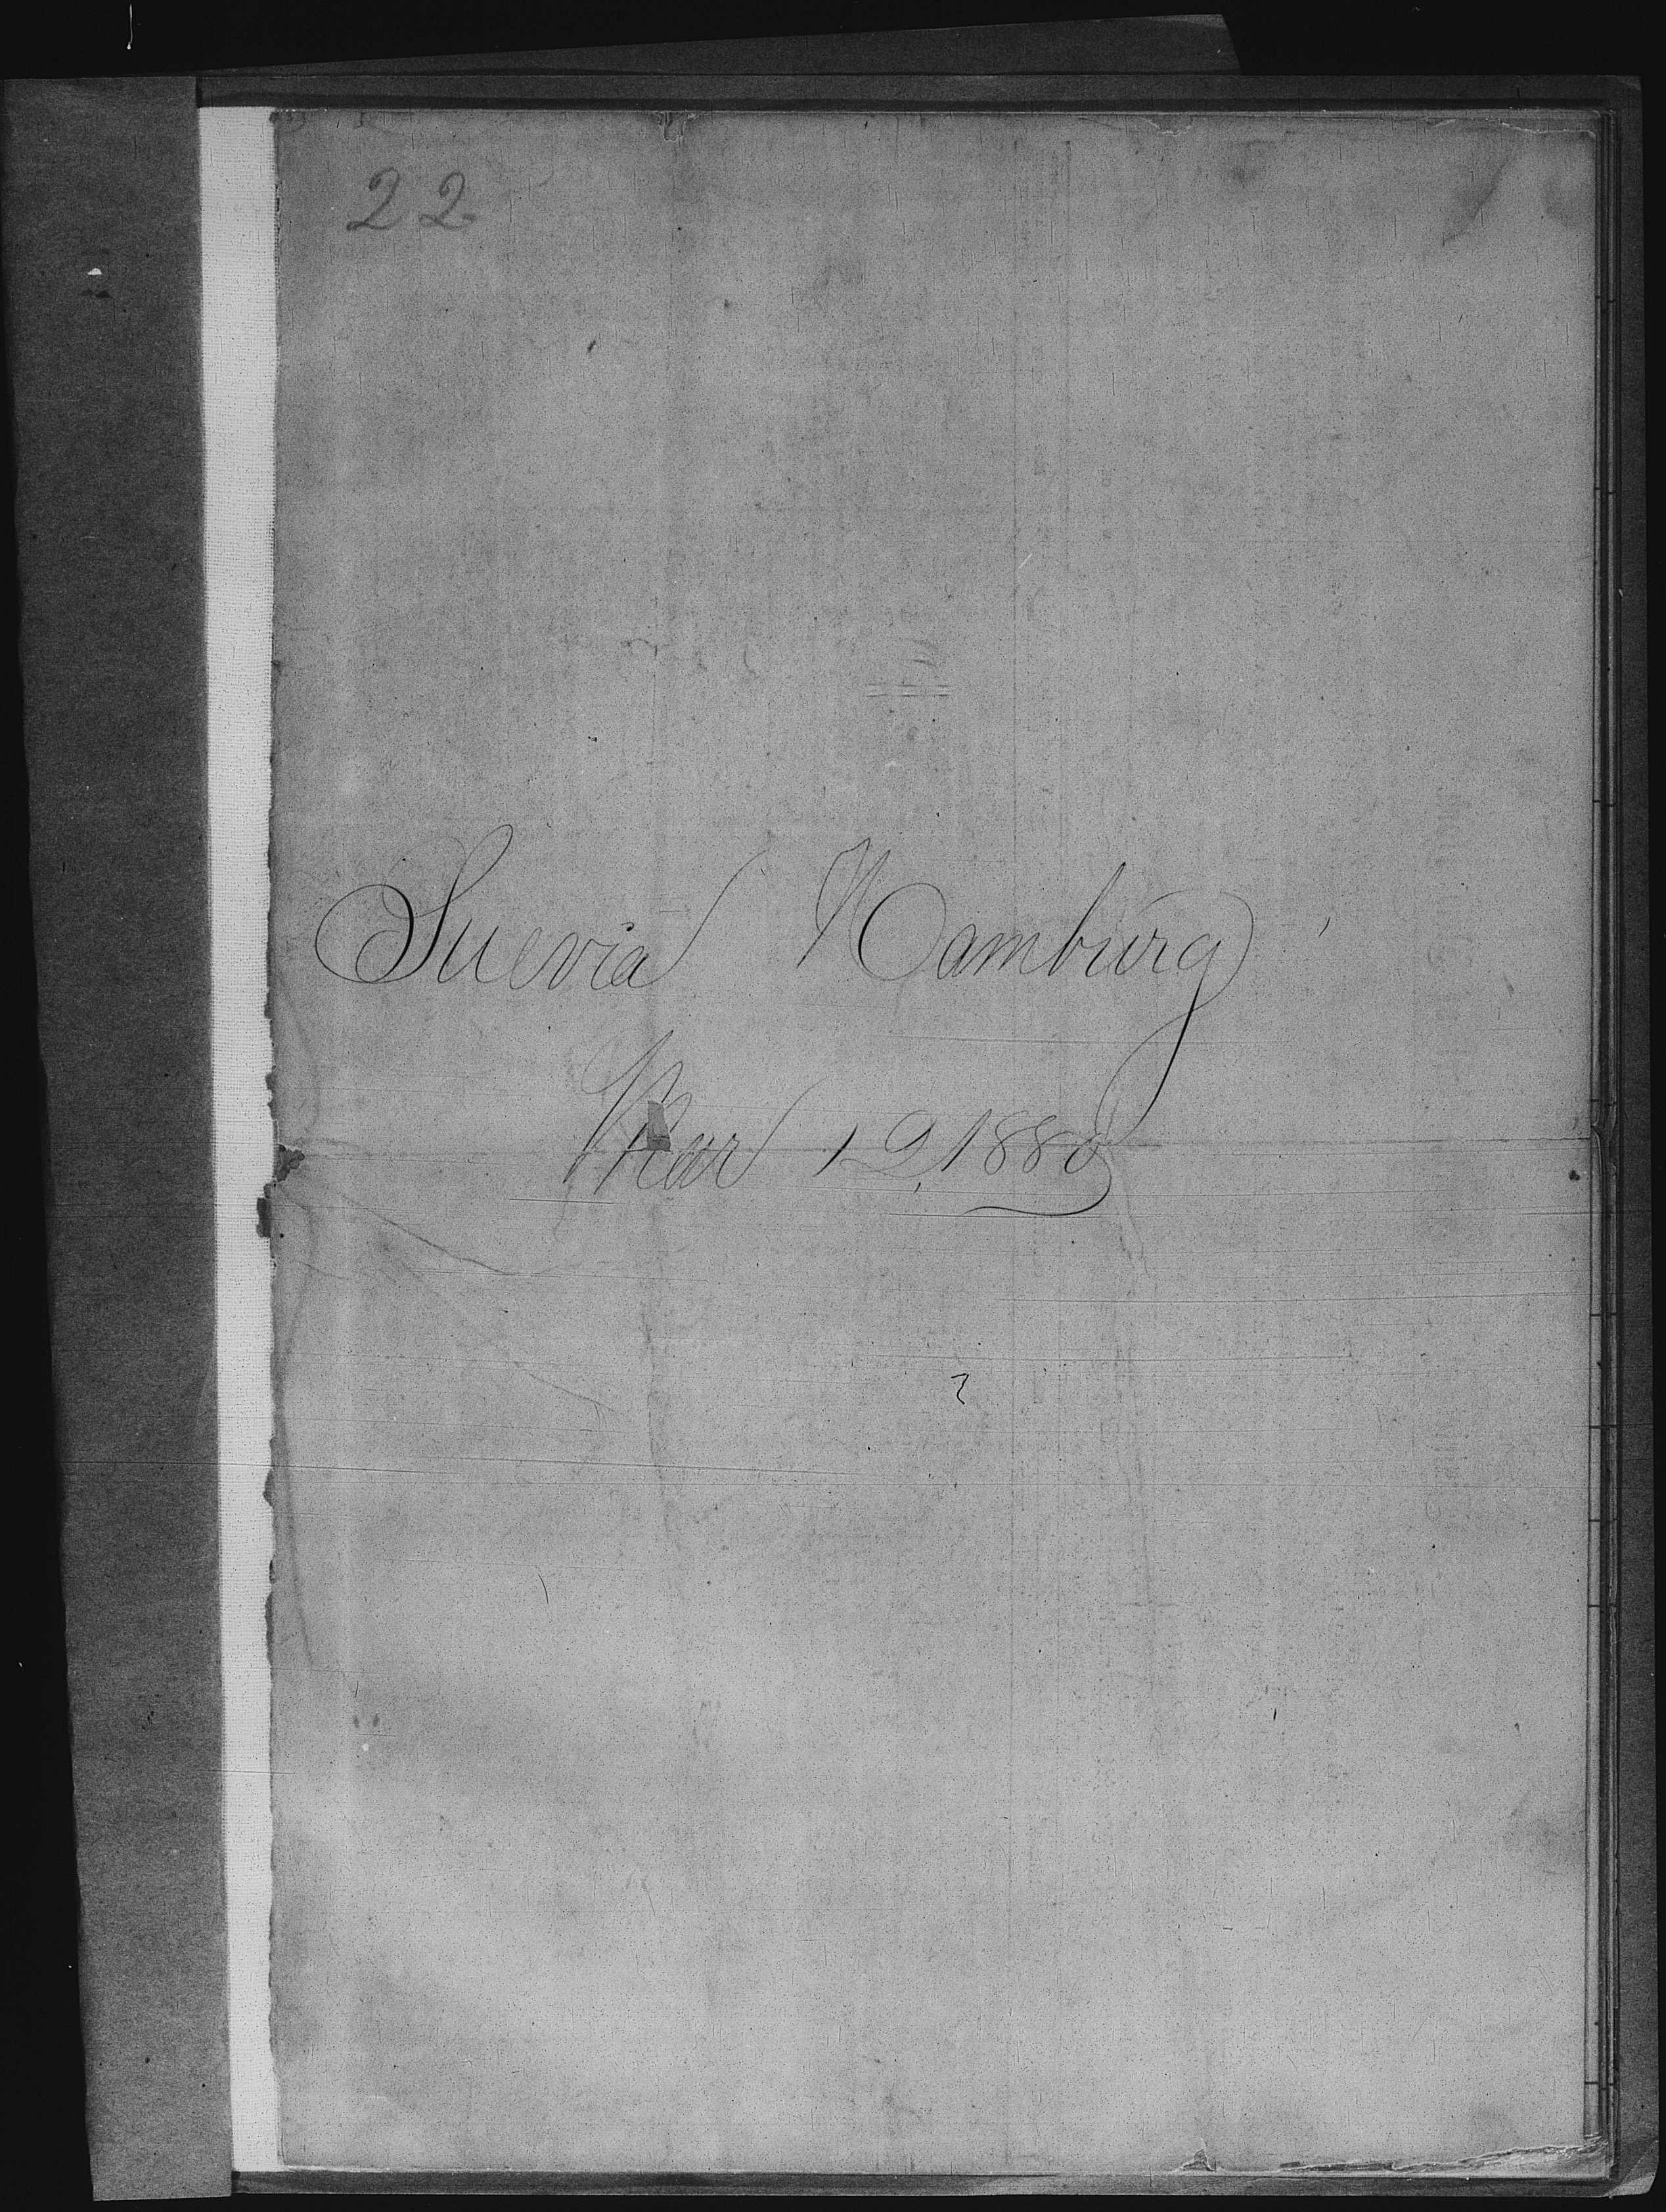 22
Suevia Hamburg
Mar 12, 1880